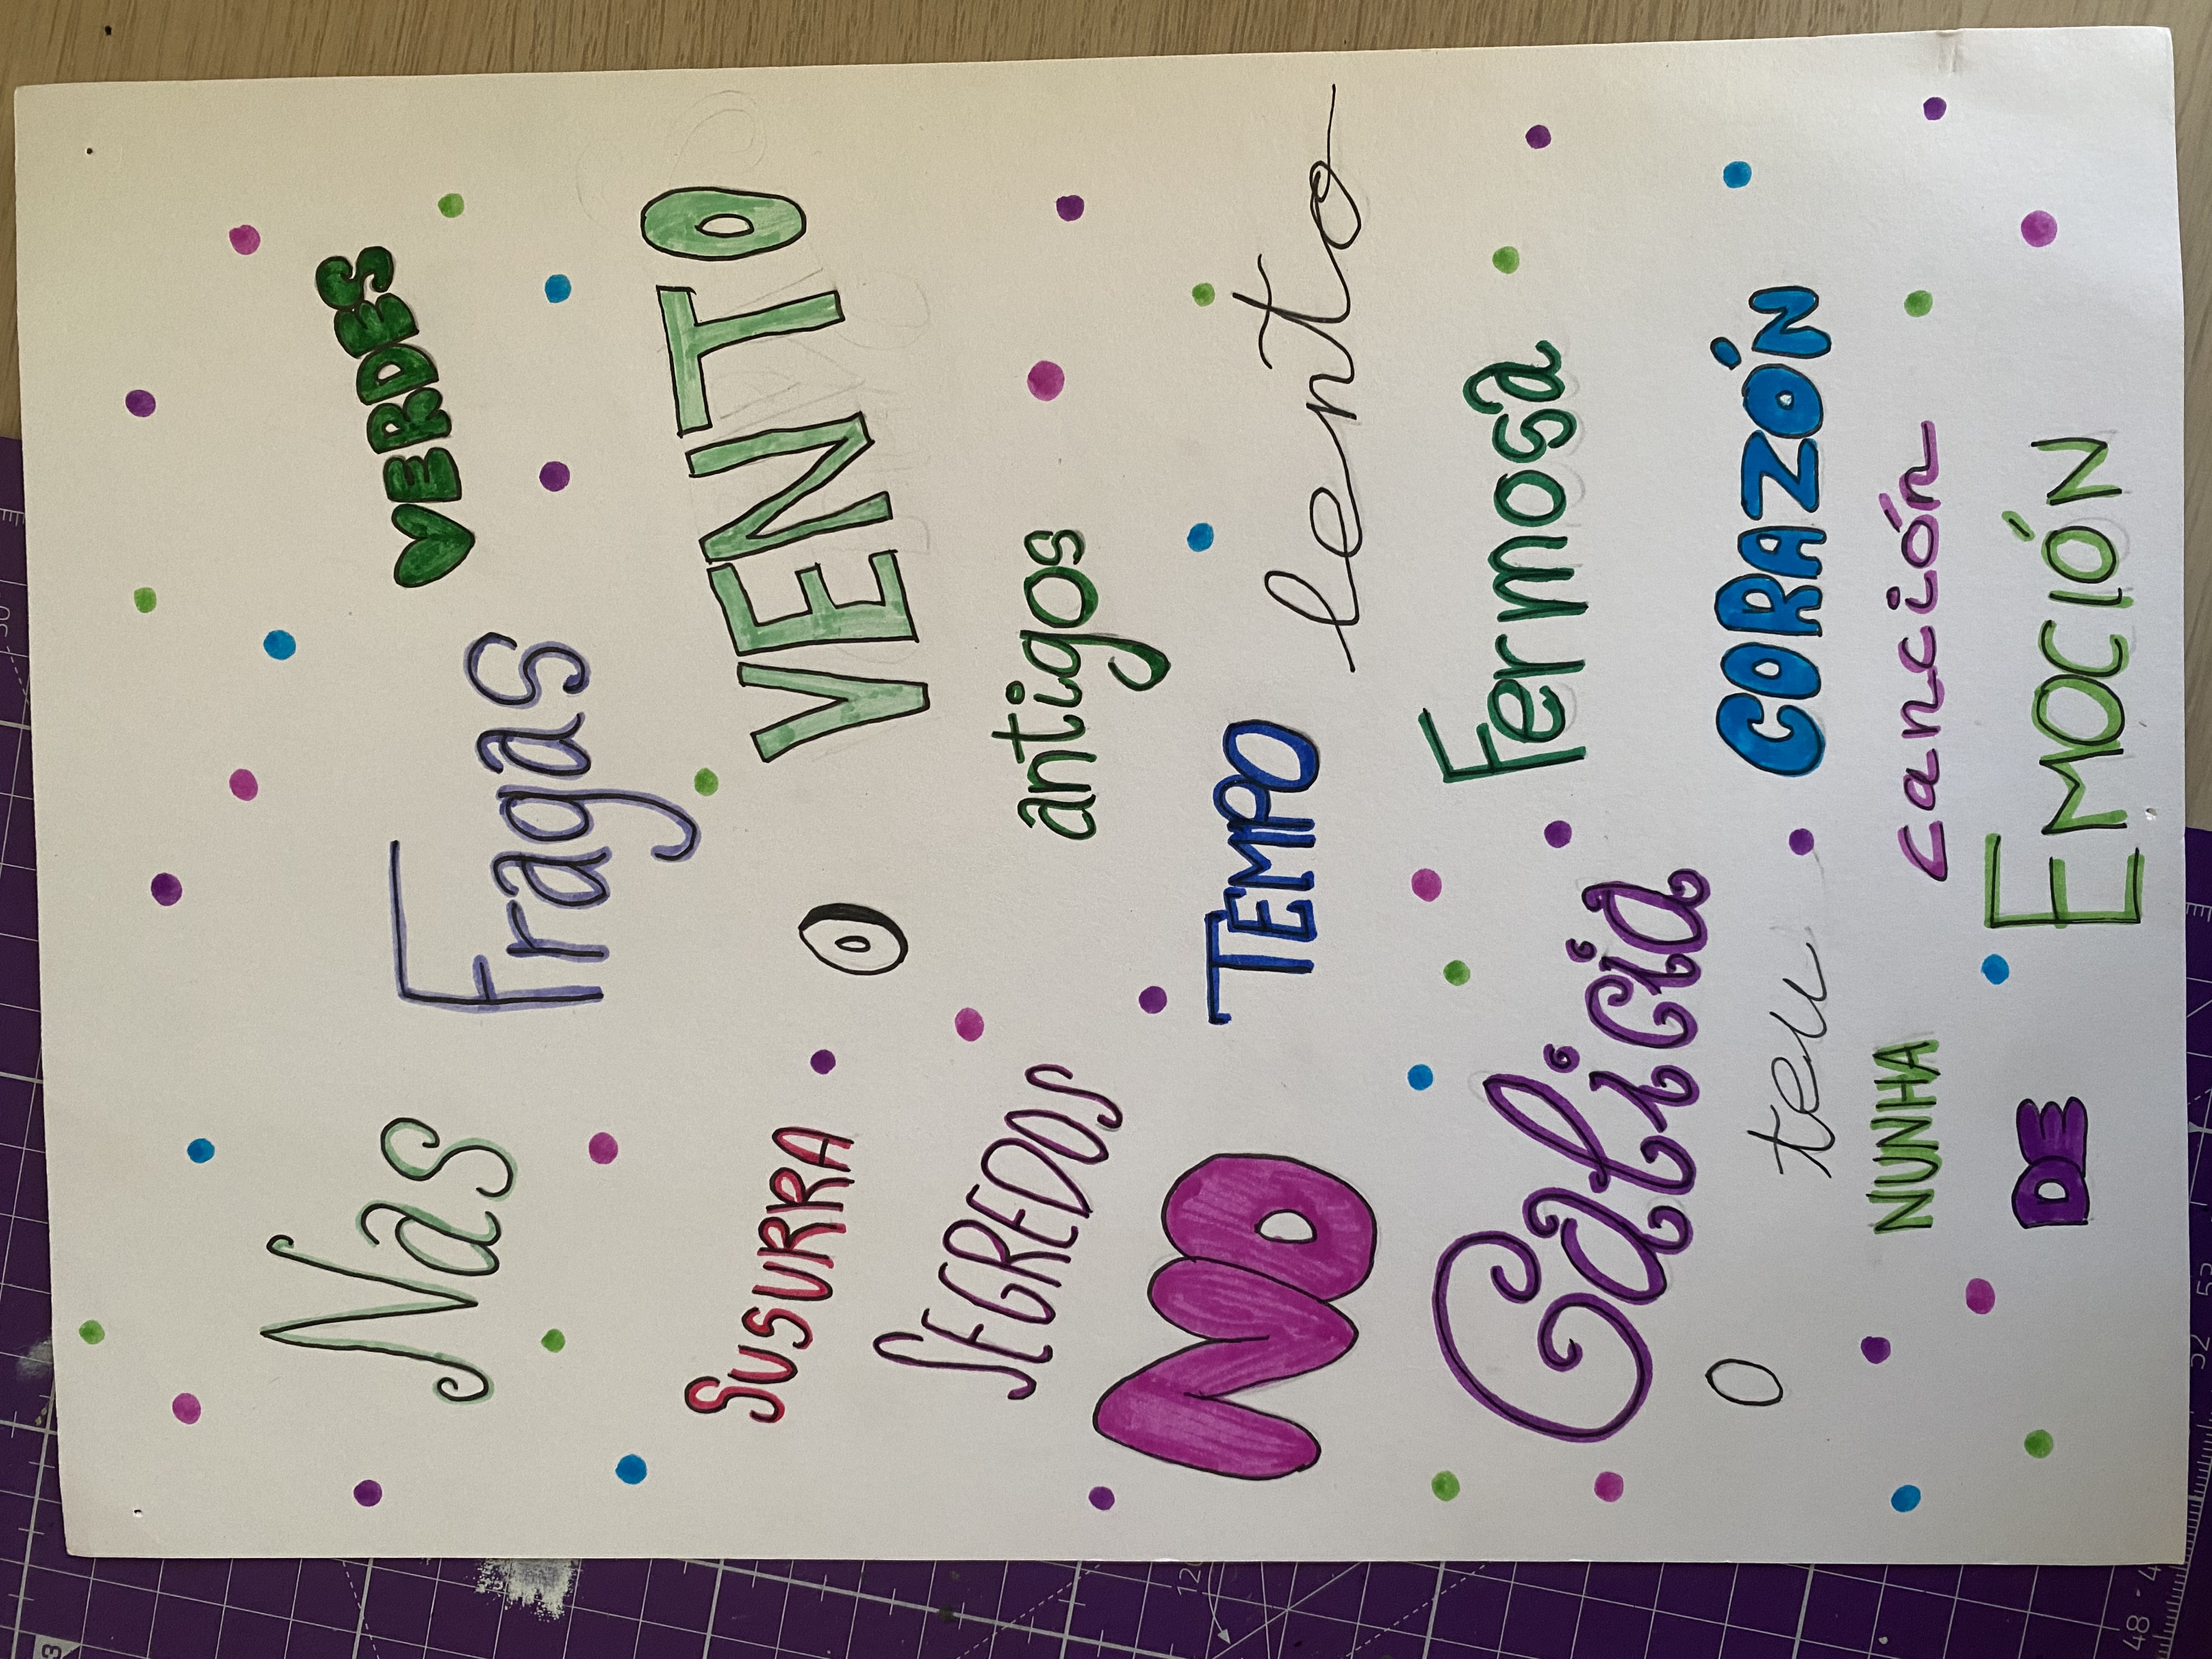 Nas Fragas VERDES
SUSURRA O VENTO
SEGREDOS antigos
NO TEMPO lento
Galicia Fermosa
O teu CORAZÓN
NUNHA canción
DE EMOCIÓN